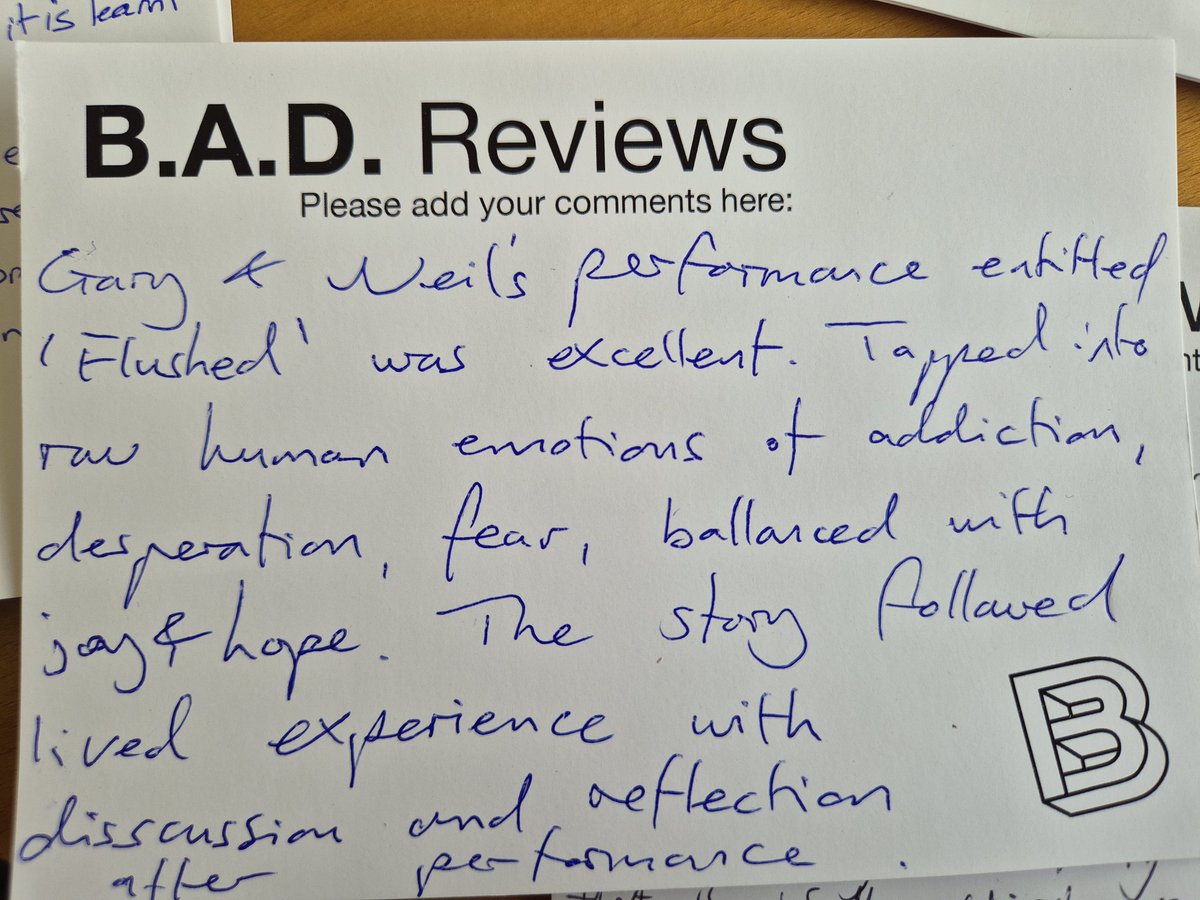 it is learni
B.A.D. Reviews
Please add your comments here:
Gary & Neil's performance entitled
'Flushed' was excellent. Tapped into
raw human emotions of addiction,
desperation, fear, ballanced with
joy & hope. The story followed
lived experience with
disscussion and reflection
after performance.
B